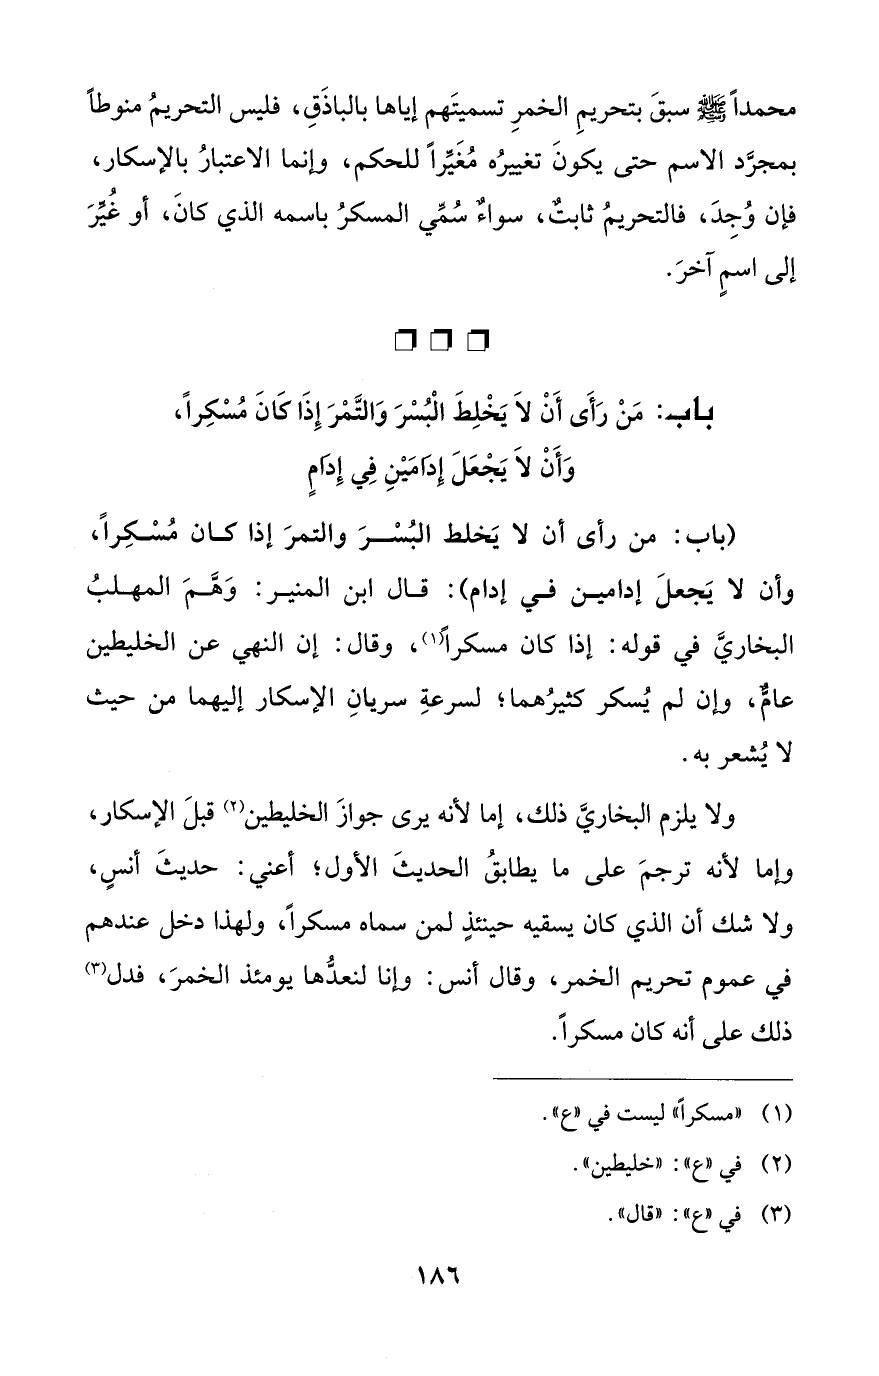 محمداً ﷺ سبقَ بتحريمِ الخمرِ تسميتَهم إياها بالباذَقِ، فليس التحريمُ منوطاً
بمجرَّد الاسم حتى يكونَ تغييرُه مُغَيِّراً للحكم، وإنما الاعتبارُ بالإسكار،
فإن وُجِدَ، فالتحريمُ ثابتٌ، سواءٌ سُمِّي المسكرُ باسمه الذي كانَ، أو غُيِّرَ
إلى اسمٍ آخرَ.
باب: مَنْ رَأَى أَنْ لاَ يَخْلِطَ الْبُسْرَ وَالتَّمْرَ إِذَا كَانَ مُسْكِراً،
وَأَنْ لاَ يَجْعَلَ إِدَامَيْنِ فِي إِدَامٍ
(باب: من رأى أن لا يَخلط البُسْرَ والتمرَ إذا كان مُسْكِراً،
وأن لا يَجعلَ إدامين في إدام): قال ابن المنير: وَهَّمَ المهلبُ
البخاريَّ في قوله: إذا كان مسكراً(١)، وقال: إن النهي عن الخليطين
عامٌّ، وإن لم يُسكر كثيرُهما؛ لسرعةِ سريانِ الإسكار إليهما من حيث
لا يُشعر به.
ولا يلزم البخاريَّ ذلك، إما لأنه يرى جوازَ الخليطين(٢) قبلَ الإسكار،
وإما لأنه ترجمَ على ما يطابقُ الحديثَ الأول؛ أعني: حديثَ أنسٍ،
ولا شك أن الذي كان يسقيه حينئذٍ لمن سماه مسكراً، ولهذا دخل عندهم
في عموم تحريم الخمر، وقال أنس: وإنا لنعدُّها يومئذ الخمرَ، فدل(٣)
ذلك على أنه كان مسكراً.
(١) «مسكراً» ليست في «ع».
(٢) في «ع»: «خليطين».
(٣) في «ع»: «قال».
١٨٦